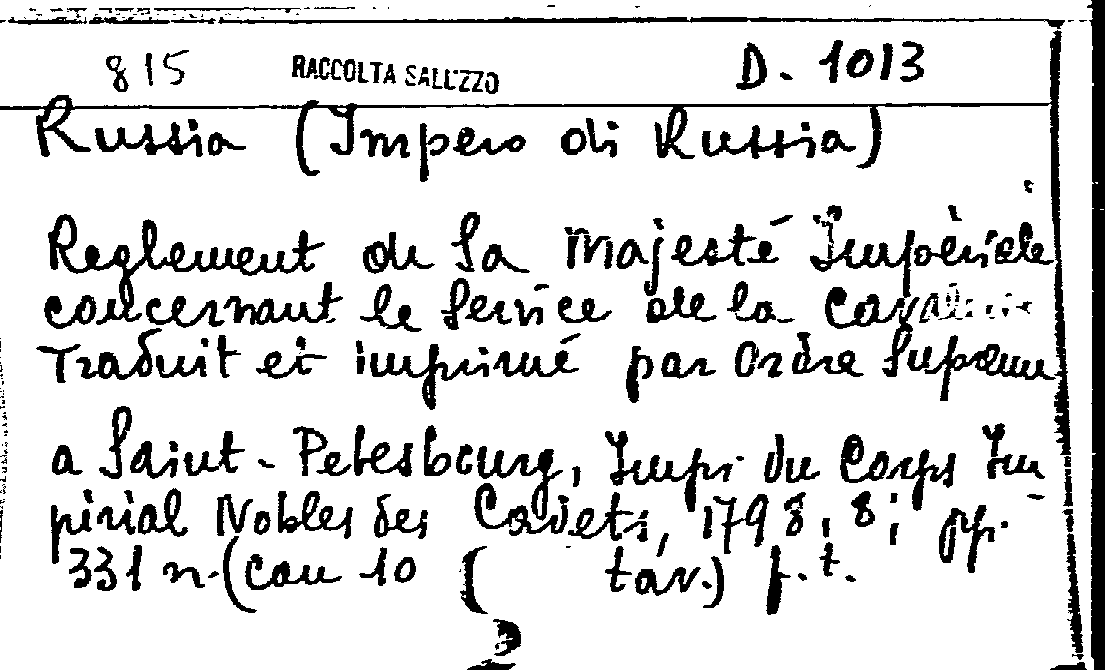 815 RACCOLTA SALUZZO D. 1013
Russia (Impero di Russia)
Reglement de Sa Majesté Impèriale
concernant le Service de la Cavalerie
Traduit et imprimé par Ordre Supreme
a Saint-Petesbourg, Impr. du Corps Im
périal Nobles des Cadets, 1798, 8; pp.
331 n. (con 10 ( tav.) f.t.